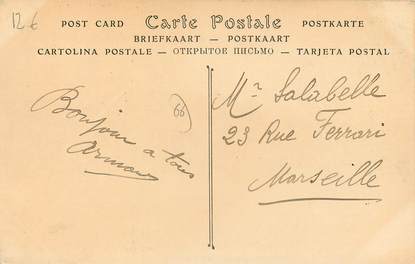 12 €
POST CARD Carte Postale POSTKARTE
BRIEFKAART — POSTKAART
CARTOLINA POSTALE — ОТКРЫТОЕ ПИСЬМО — TARJETA POSTAL
Bonjour
a tous
Armand
66
Mr Salabelle
23 Rue Ferrari
Marseille